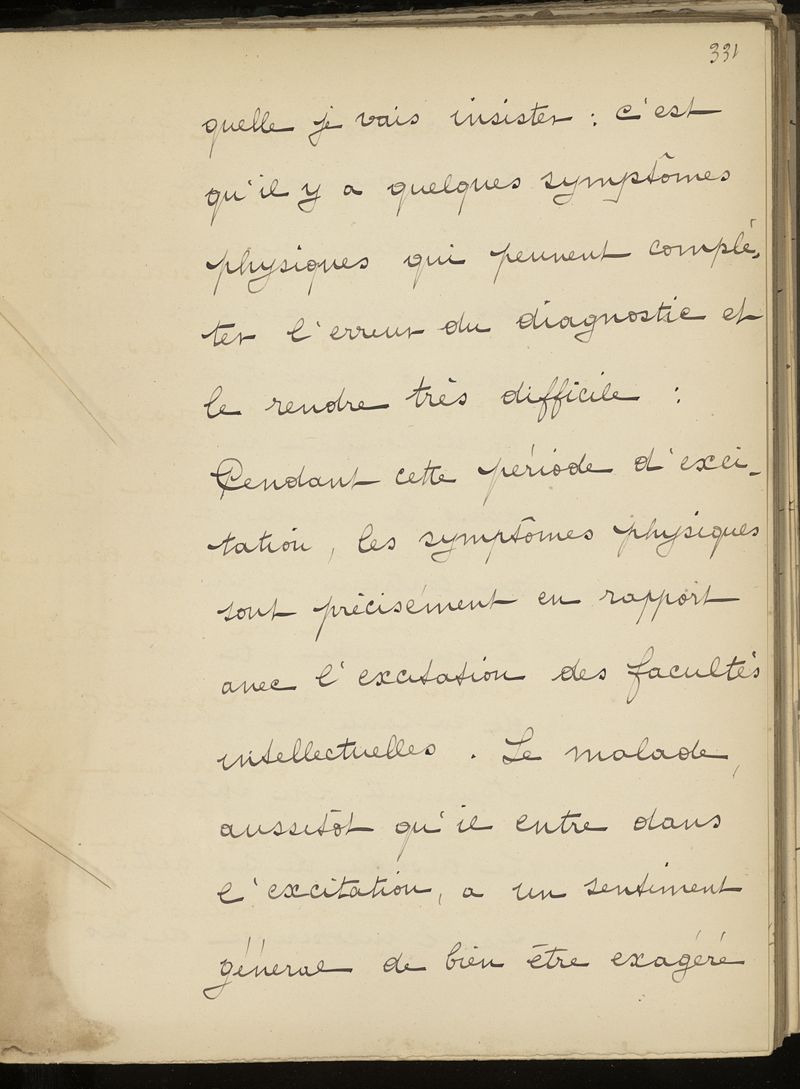 331
quelle je vais insister : c'est
qu'il y a quelques symptômes
physiques qui peuvent complé-
ter l'erreur du diagnostic et
le rendre très difficile :
Pendant cette période d'exci-
tation, les symptômes physiques
sont précisément en rapport
avec l'excitation des facultés
intellectuelles. Le malade,
aussitôt qu'il entre dans
l'excitation, a un sentiment
général de bien être exagéré